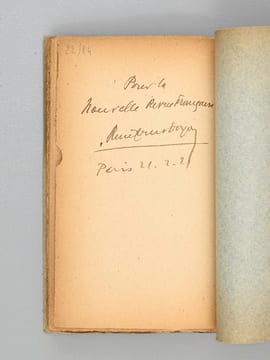 22/14
Pour la
Nouvelle Revue Française
Paris 21. 2. 21